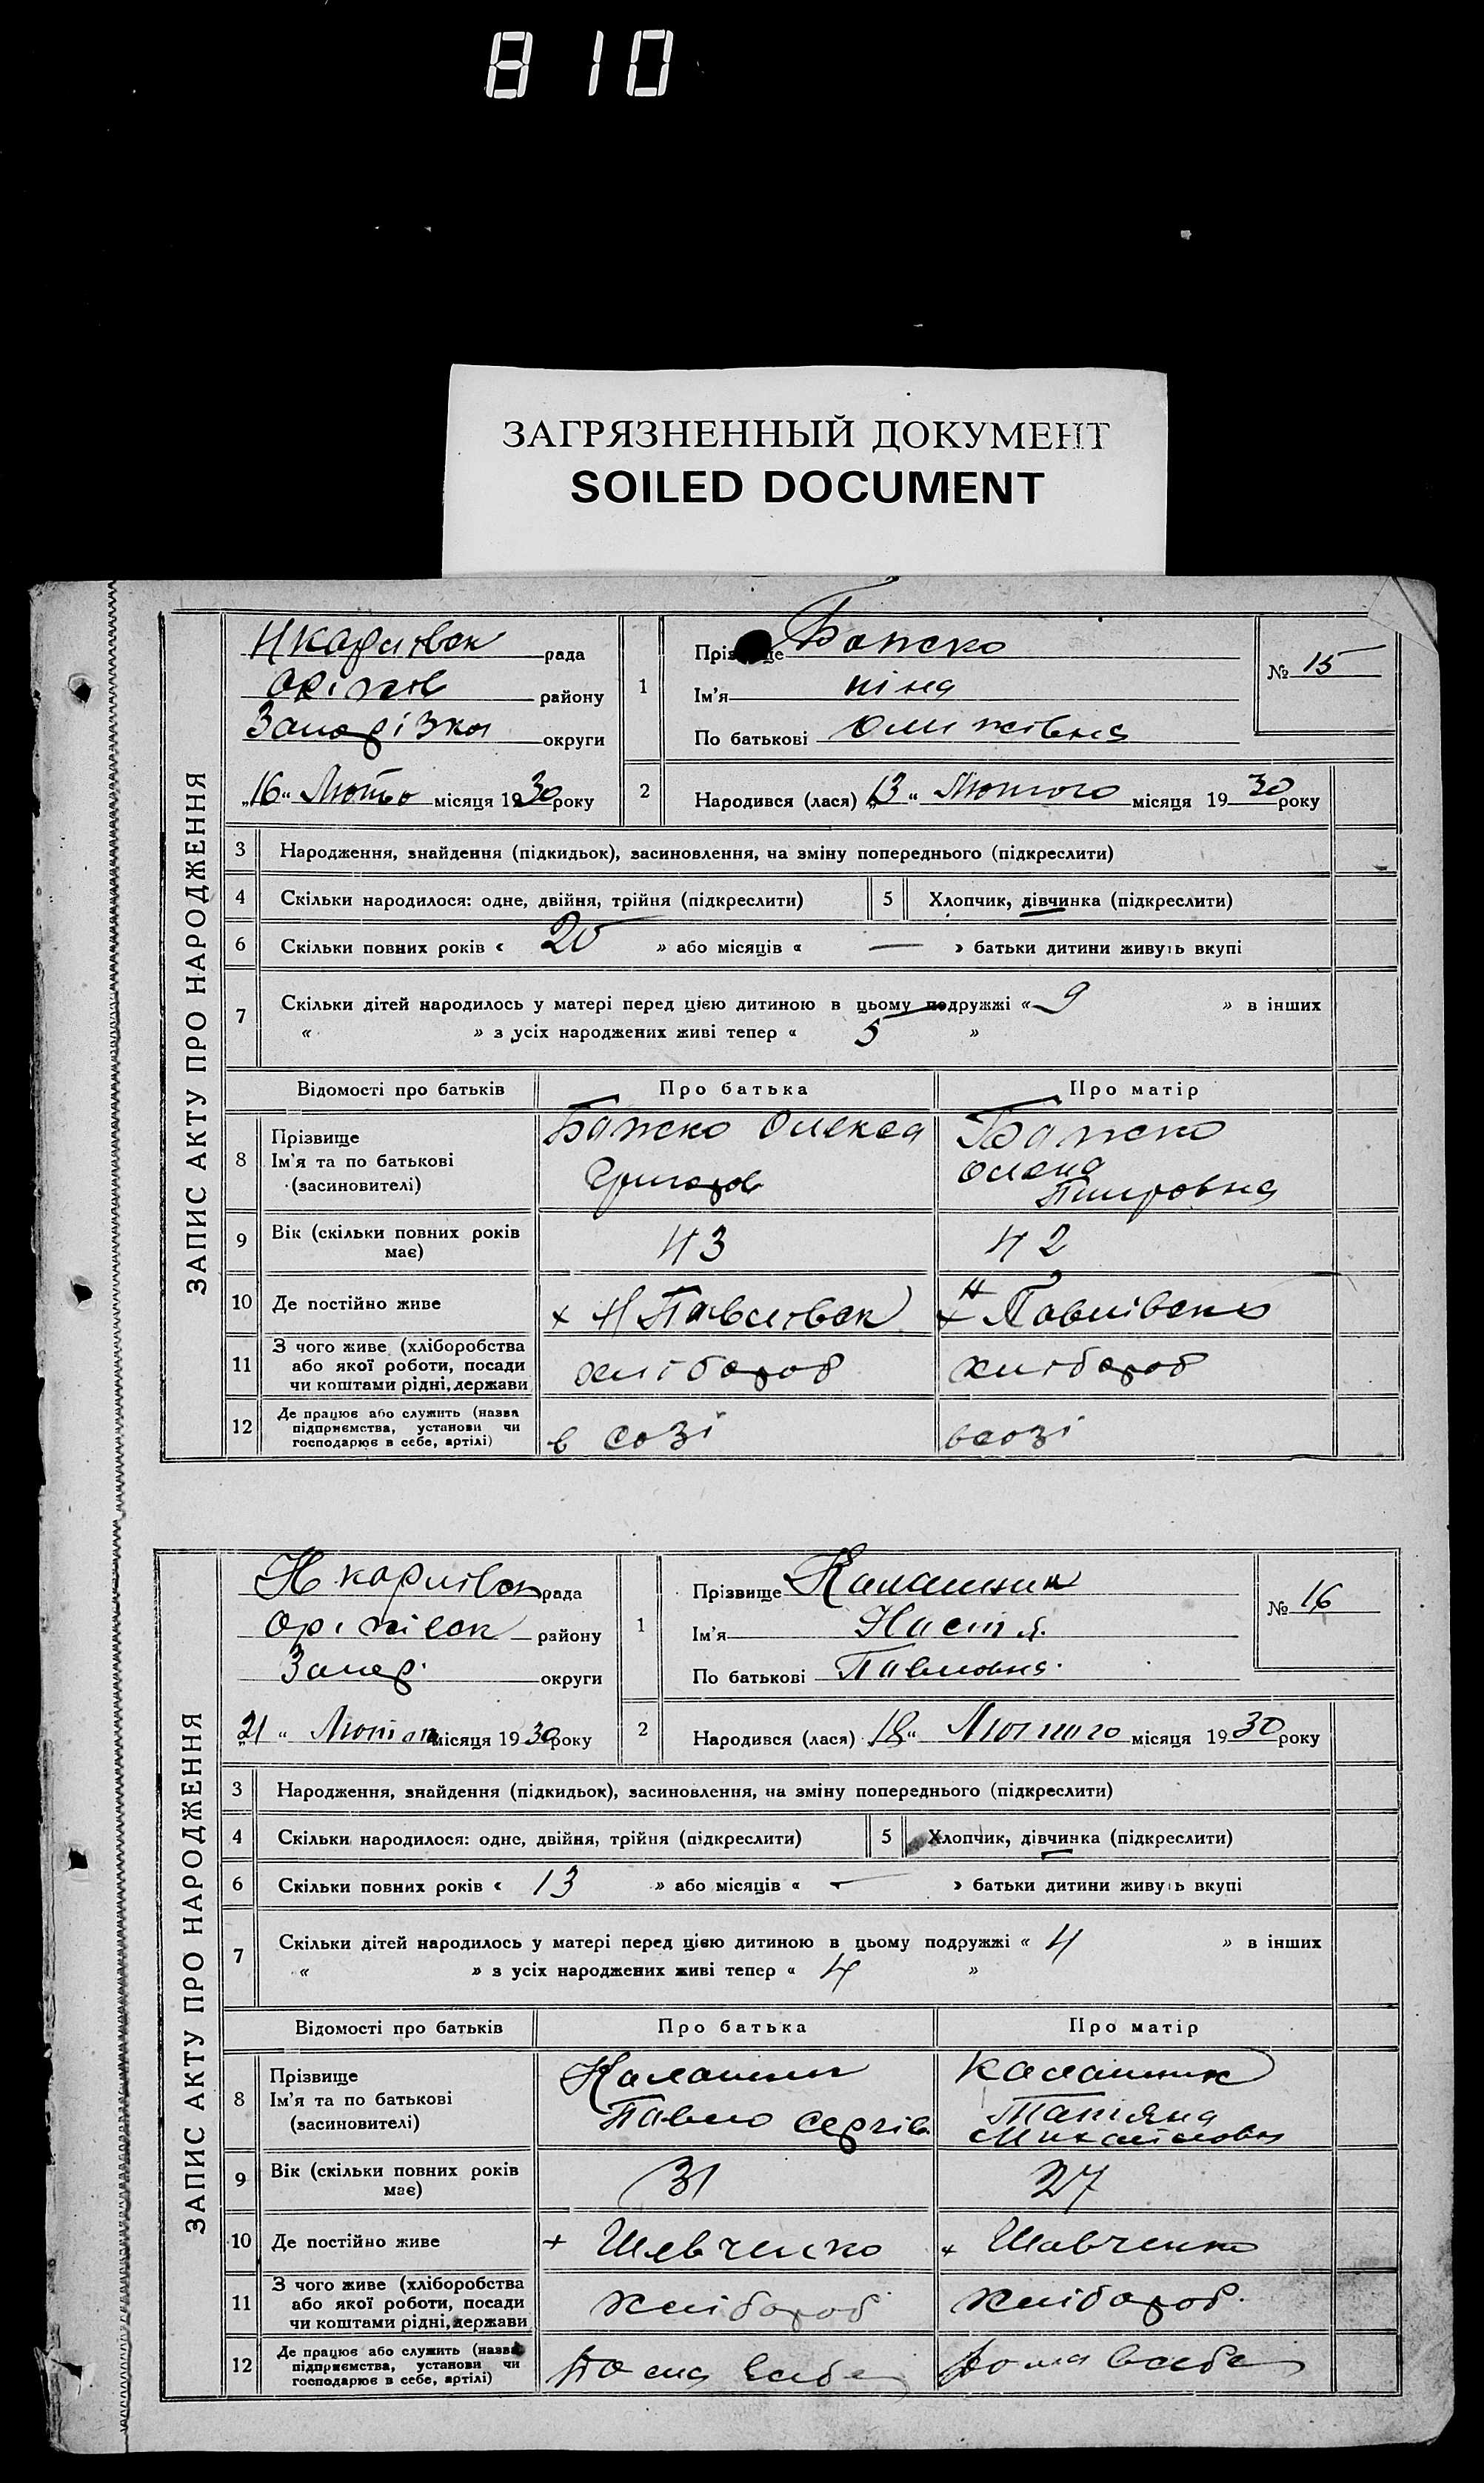 8 10
ЗАГРЯЗНЕННЫЙ ДОКУМЕНТ
SOILED DOCUMENT
ЗАПИС АКТУ ПРО НАРОДЖЕННЯ
Нкарлівск рада
Оріхів району
Запорізкоі округи
„16“ Лютого місяця 1930 року
1
Прізвище Бажско
Ім'я Ніна
По батькові
№ 15
2
Народився (лася) „13“ Лютого місяця 1930 року
3 Народження, знайдення (підкидьок), засиновлення, на зміну попереднього (підкреслити)
4 Скільки народилося: одне, двійня, трійня (підкреслити) 5 Хлопчик, дівчинка (підкреслити)
6 Скільки повних років « 20 » або місяців « — » батьки дитини живуть вкупі
7 Скільки дітей народилось у матері перед цією дитиною в цьому подружжі « 9 » в інших
« » з усіх народжених живі тепер « 5 »
Відомості про батьків Про батька Про матір
8 Прізвище
Ім'я та по батькові
(засиновителі)
Бажско Олекса
Григоров
Бажско
Олена
Питровна
9 Вік (скільки повних років має) 43 42
10 Де постійно живе х Н Павлівск х Н Павлівско
11 З чого живе (хліборобства
або якої роботи, посади
чи коштами рідні, держави
хлібороб хлібороб
12 Де працює або служить (назва
підприємства, установи чи
господарює в себе, артілі)
в созі всозі
ЗАПИС АКТУ ПРО НАРОДЖЕННЯ
Нкарлівск рада
Оріхівск району
Запор. округи
„21“ місяця 1930 року
1
Прізвище Калашник
Ім'я Настя.
По батькові Павловна.
№ 16
2
Народився (лася) „18“ Лютого місяця 1930 року
3 Народження, знайдення (підкидьок), засиновлення, на зміну попереднього (підкреслити)
4 Скільки народилося: одне, двійня, трійня (підкреслити) 5 Хлопчик, дівчинка (підкреслити)
6 Скільки повних років « 13 » або місяців « — » батьки дитини живуть вкупі
7 Скільки дітей народилось у матері перед цією дитиною в цьому подружжі « 4 » в інших
« » з усіх народжених живі тепер « 4 »
Відомості про батьків Про батька Про матір
8 Прізвище
Ім'я та по батькові
(засиновителі)
Калашник
Павло Сергіів
Калашник
Татяна
Михайловна
9 Вік (скільки повних років має) 31 27
10 Де постійно живе х Шевченко х Шевченко
11 З чого живе (хліборобства
або якої роботи, посади
чи коштами рідні, держави
хлібороб хлібороб.
12 Де працює або служить (назва
підприємства, установи чи
господарює в себе, артілі)
Дома всебе Дома всебе